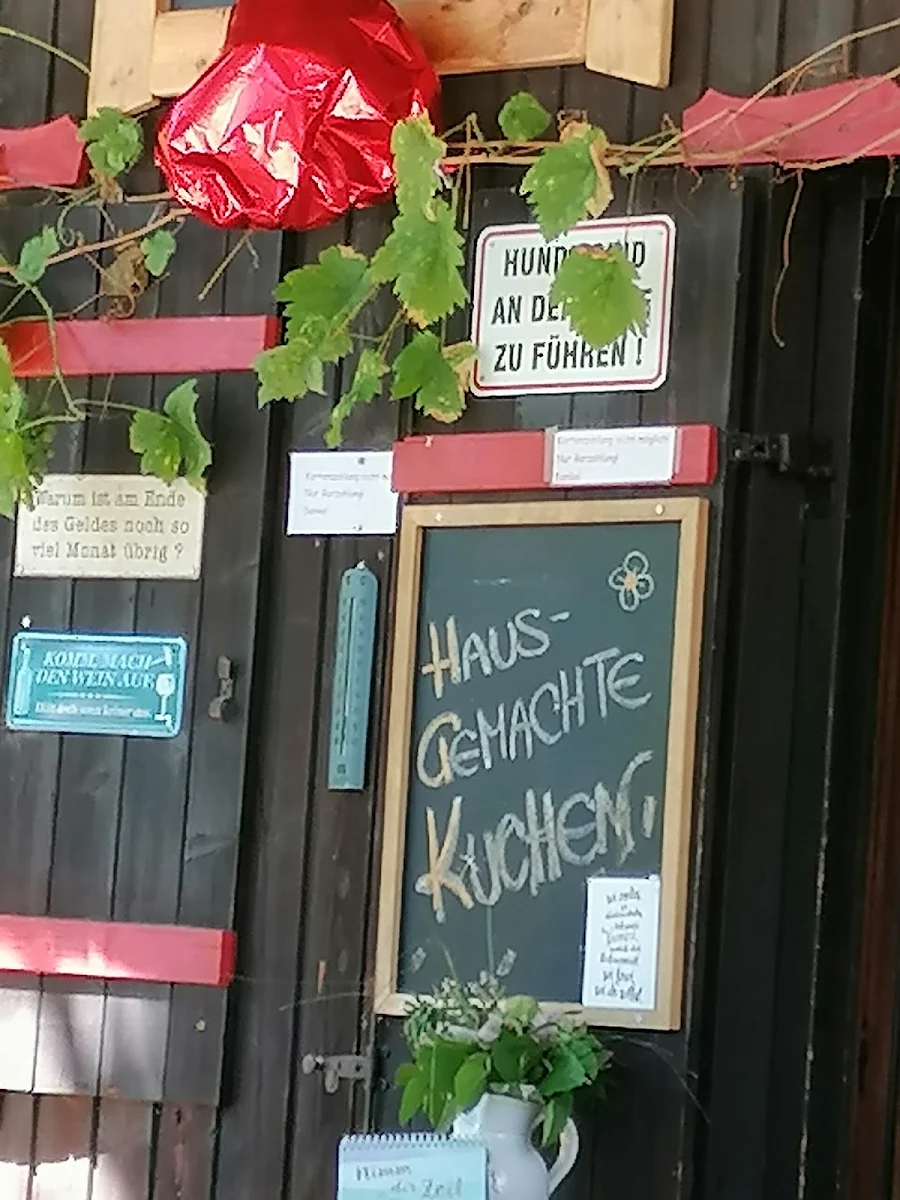 HUNDE
AN DER
ZU FÜHREN !
Kartenzahlung nicht möglich!
Nur Barzahlung!
Danke!
Kartenzahlung nicht
Nur Barzahlung!
Danke!
Warum ist am Ende
des Geldes noch so
viel Monat übrig ?
KOMM, MACH
DEN WEIN AUF,
HAUS-
GEMACHTE
KUCHEN,
Nimm
dir Zeit